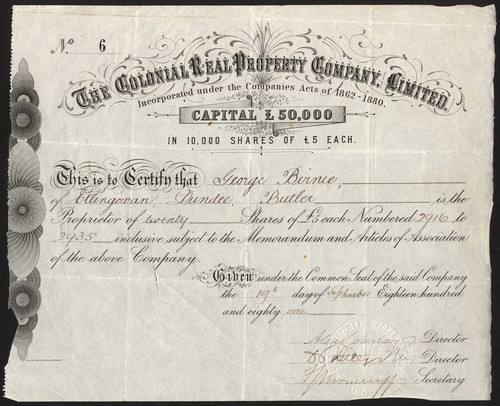 No. 6
THE COLONIAL REAL PROPERTY COMPANY, LIMITED.
Incorporated under the Companies Acts of 1862-1880.
CAPITAL £50,000
IN 10,000 SHARES OF £5 EACH.
This is to Certify that George Birnie,
of Ellengowan, Dundee, Butler is the
Proprietor of twenty Shares of £5 each Numbered 2916 to
2935 inclusive subject to the Memorandum and Articles of Association
of the above Company.
Given under the Common Seal of the said Company
the 19th day of September Eighteen hundred
and eighty one
Director
Director
Secretary